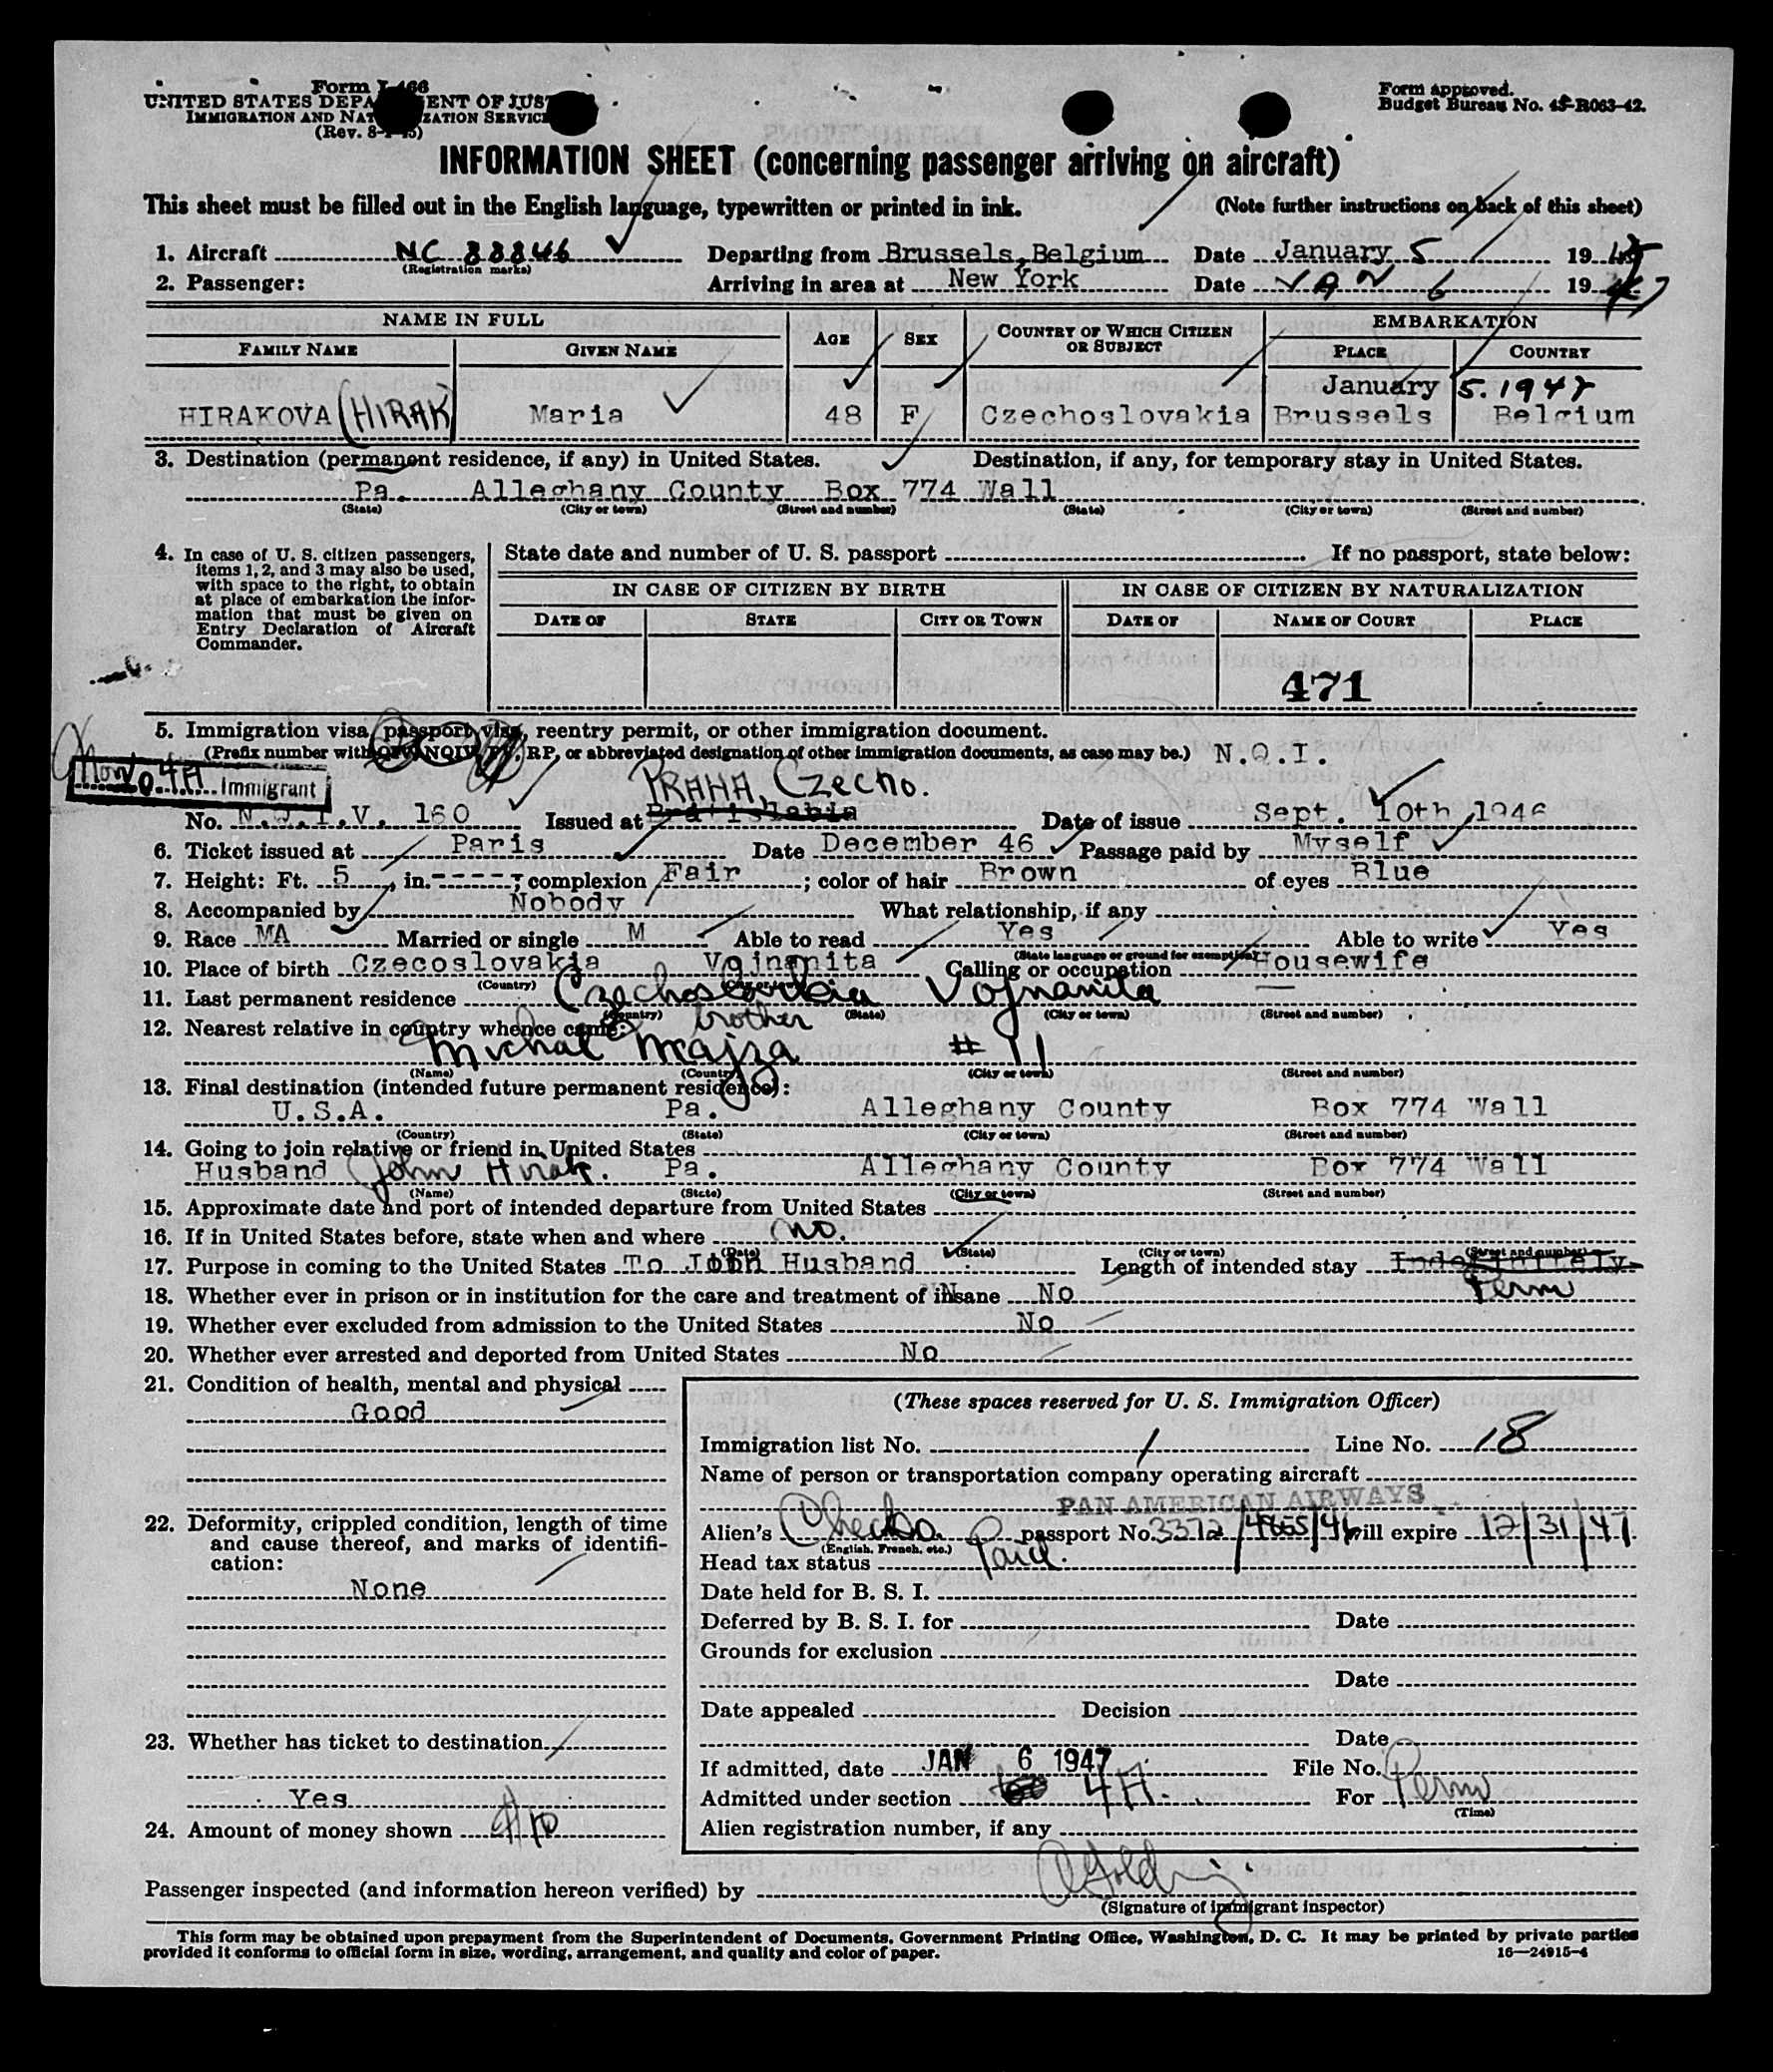 Form I-466
UNITED STATES DEPARTMENT OF JUSTICE
IMMIGRATION AND NATURALIZATION SERVICE
(Rev. 8-1-45)
Form approved.
Budget Bureau No. 43-R063-42.
INFORMATION SHEET (concerning passenger arriving on aircraft)
This sheet must be filled out in the English language, typewritten or printed in ink. (Note further instructions on back of this sheet)
1. Aircraft NC 88846 Departing from Brussels, Belgium Date January 5 19
(Registration marks)
2. Passenger: Arriving in area at New York Date JAN 6 1947
NAME IN FULL AGE SEX COUNTRY OF WHICH CITIZEN OR SUBJECT EMBARKATION
FAMILY NAME GIVEN NAME PLACE COUNTRY
January 5. 1947
HIRAKOVA (HIRAK) Maria 48 F Czechoslovakia Brussels Belgium
3. Destination (permanent residence, if any) in United States. Destination, if any, for temporary stay in United States.
Pa. Alleghany County Box 774 Wall
(State) (City or town) (Street and number) (State) (City or town) (Street and number)
4. In case of U. S. citizen passengers, items 1, 2, and 3 may also be used, with space to the right, to obtain at place of embarkation the information that must be given on Entry Declaration of Aircraft Commander.
State date and number of U. S. passport If no passport, state below:
IN CASE OF CITIZEN BY BIRTH IN CASE OF CITIZEN BY NATURALIZATION
DATE OF STATE CITY OR TOWN DATE OF NAME OF COURT PLACE
471
5. Immigration visa, passport visa, reentry permit, or other immigration document.
(Prefix number with QIV, NQIV, PV, RP, or abbreviated designation of other immigration documents, as case may be.) N.Q.I.
Non 4A Immigrant
PRAHA, Czecho.
No. N.Q.I.V. 160 Issued at Bratislabia Date of issue Sept. 10th 1946
6. Ticket issued at Paris Date December 46 Passage paid by Myself
7. Height: Ft. 5, in. -----; complexion Fair; color of hair Brown of eyes Blue
8. Accompanied by Nobody What relationship, if any
9. Race MA Married or single M Able to read Yes Able to write Yes
(State language or ground for exemption)
10. Place of birth Czecoslovakia Vojnanita Calling or occupation Housewife
(Country) (City or town)
11. Last permanent residence Czechoslovakia Vojnanita
(Country) (State) (City or town) (Street and number)
12. Nearest relative in country whence came: brother
Michal Mcajza # 91
(Name) (Country) (City or town) (Street and number)
13. Final destination (intended future permanent residence):
U.S.A. Pa. Alleghany County Box 774 Wall
(Country) (State) (City or town) (Street and number)
14. Going to join relative or friend in United States
Husband John Hirak. Pa. Alleghany County Box 774 Wall
(Name) (State) (City or town) (Street and number)
15. Approximate date and port of intended departure from United States
16. If in United States before, state when and where no.
(Date) (State) (City or town) (Street and number)
17. Purpose in coming to the United States To Join Husband Length of intended stay Indefinitely
Perm
18. Whether ever in prison or in institution for the care and treatment of insane No
19. Whether ever excluded from admission to the United States No
20. Whether ever arrested and deported from United States No
21. Condition of health, mental and physical
Good
22. Deformity, crippled condition, length of time and cause thereof, and marks of identification:
None
23. Whether has ticket to destination
Yes
24. Amount of money shown $10
(These spaces reserved for U. S. Immigration Officer)
Immigration list No. 1 Line No. 18
Name of person or transportation company operating aircraft
PAN AMERICAN AIRWAYS
Alien's Checho. passport No. 3372/4865/46 will expire 12/31/47.
(English, French, etc.)
Head tax status Paid.
Date held for B. S. I.
Deferred by B. S. I. for Date
Grounds for exclusion
Date
Date appealed Decision
Date
If admitted, date JAN 6 1947 File No.
Admitted under section 4A. For Perm
(Time)
Alien registration number, if any
Passenger inspected (and information hereon verified) by
(Signature of immigrant inspector)
This form may be obtained upon prepayment from the Superintendent of Documents, Government Printing Office, Washington, D. C. It may be printed by private parties
provided it conforms to official form in size, wording, arrangement, and quality and color of paper. 16—24915-4